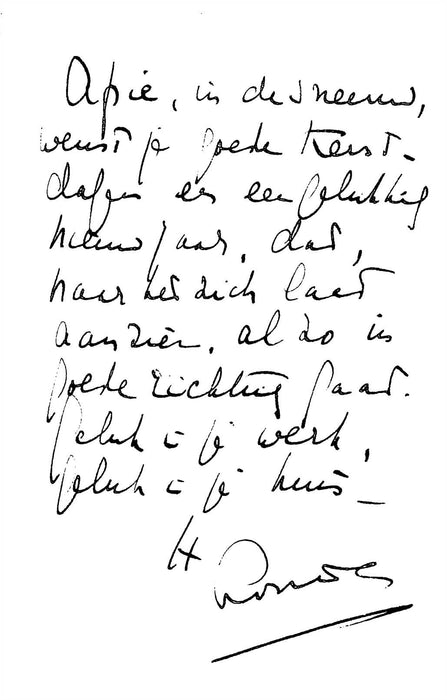 Apie, in de sneeuw,
wenst je goede Kerst-
dagen en een gelukkig
nieuwjaar, dat,
naar het zich laat
aanzien, al zo in
goede richting gaat.
Geluk in je werk,
geluk in je huis –
H